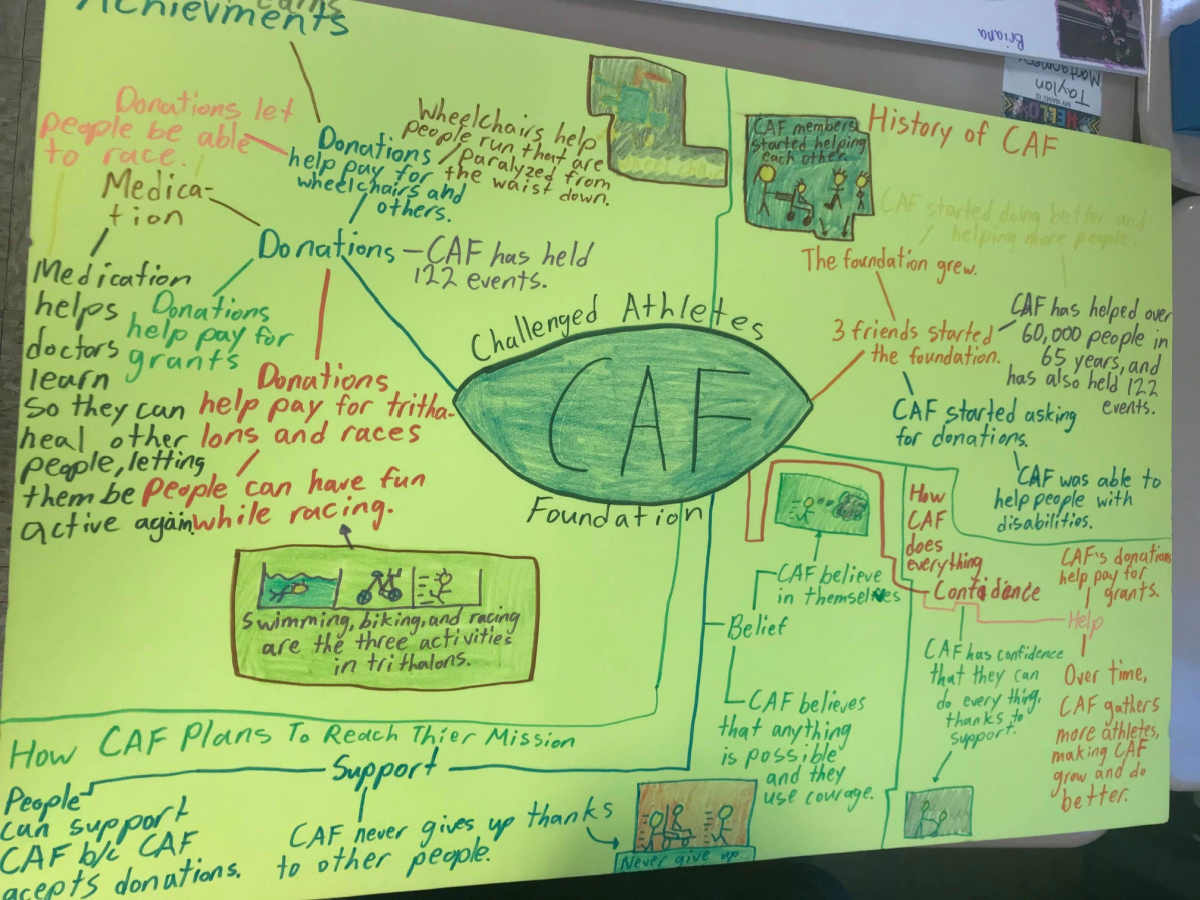 Achievments
Donations let
people be able
to race.
Medica-
tion
Medication
helps
doctors
learn
so they can
heal other
people, letting
them be
active again.
Donations
help pay for
wheelchairs and
others.
Wheelchairs help
people run that are
paralyzed from
the waist down.
Donations
CAF has held
122 events.
Donations
help pay for
grants
Donations
help pay for tritha-
lons and races
People can have fun
while racing.
Swimming, biking, and racing
are the three activities
in trithalons.
Challenged Athletes
CAF
Foundation
History of CAF
CAF members
started helping
each other.
CAF started doing better and
helping more people.
The foundation grew.
3 friends started
the foundation.
CAF has helped over
60,000 people in
65 years, and
has also held 122
events.
CAF started asking
for donations.
CAF was able to
help people with
disabilities.
How CAF Plans To Reach Thier Mission
Support
People
can support
CAF b/c CAF
acepts donations.
CAF never gives up thanks
to other people.
Never give up
Belief
CAF believe
in themselves
CAF believes
that anything
is possible
and they
use courage.
How
CAF
does
everything
Confidence
CAF has confidence
that they can
do every thing,
thanks to
support.
CAF's donations
help pay for
grants.
Help
Over time,
CAF gathers
more athletes,
making CAF
grow and do
better.
Briana
HELLO
MY NAME IS
Taylan